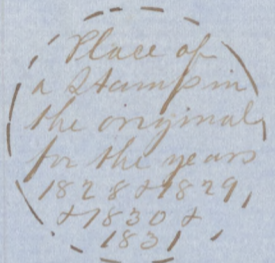 Place of
a Stamp in
the original
for the years
1828 & 1829,
& 1830 &
1831